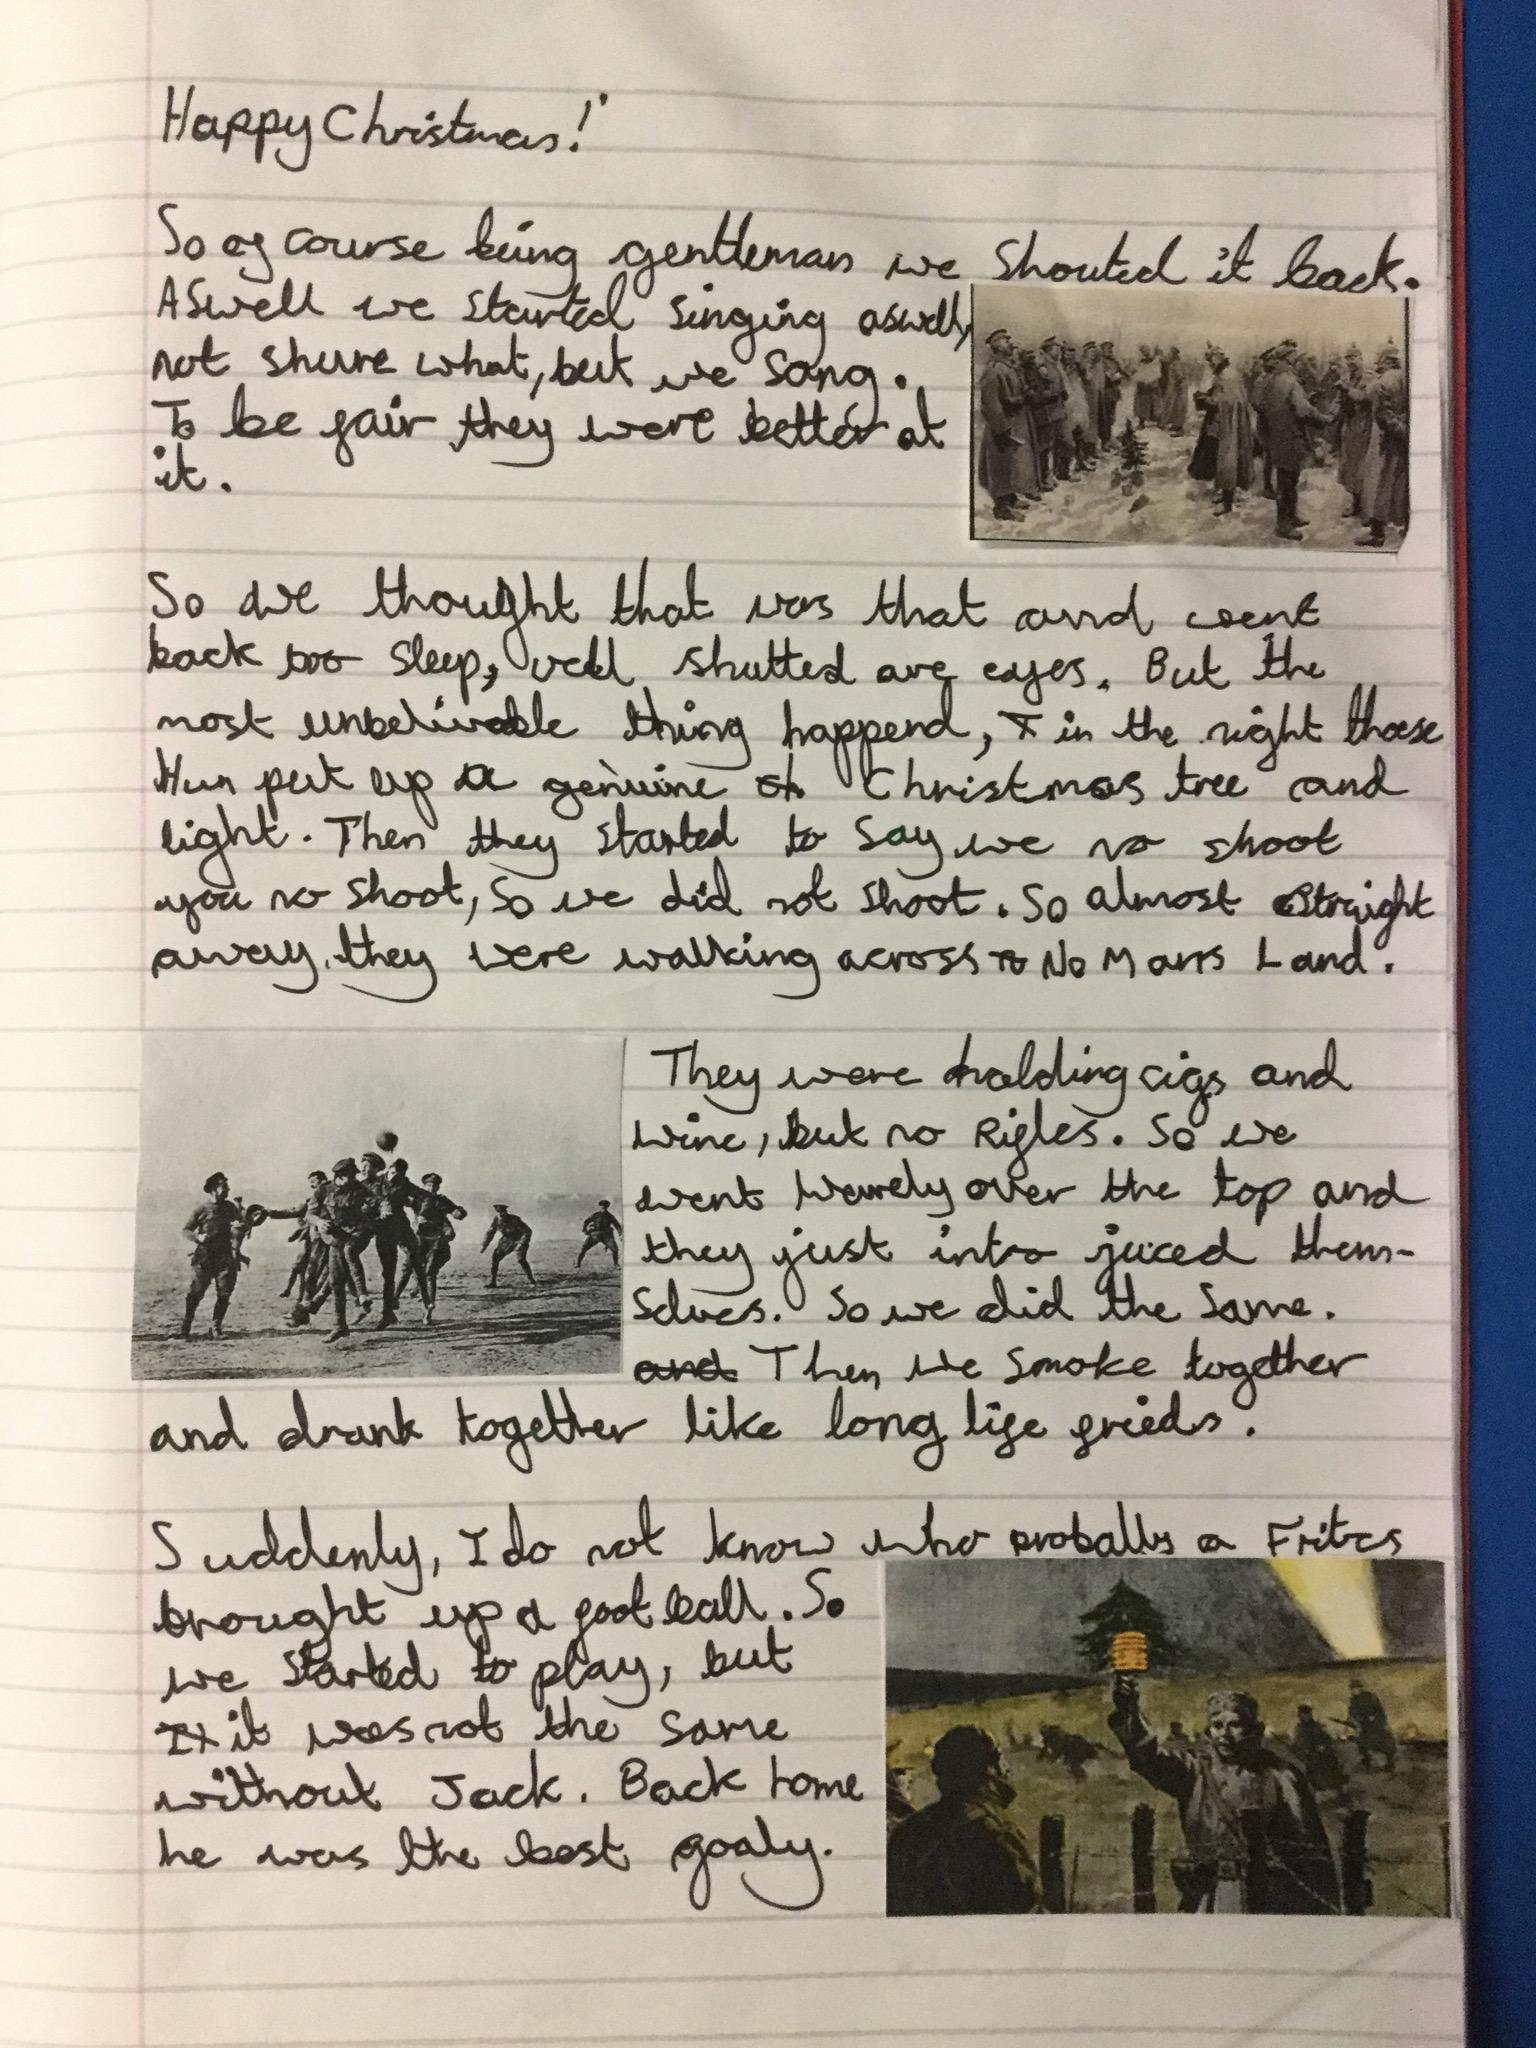 Happy Christmas!'
So of course being gentleman we shouted it back.
Aswell we started singing aswell,
not shure what, but we sang.
To be fair they were better at
it.
So we thought that was that and went
back too sleep, well shutted are eyes. But the
most unbelivable thing happend, in the night those
Hun put up a genuine Christmas tree and
light. Then they started to say we no shoot
you no shoot, so we did not shoot. So almost straight
away, they were walking across to No Mans Land.
They were holding cigs and
wine, but no Rifles. So we
went warely over the top and
they just intro juced them-
selves. So we did the same.
and Then we smoke together
and drank together like long life frieds.
Suddenly, I do not know who probally a Fritzs
brought up a foot ball. So
we started to play, but
it was not the same
without Jack. Back home
he was the best goaly.